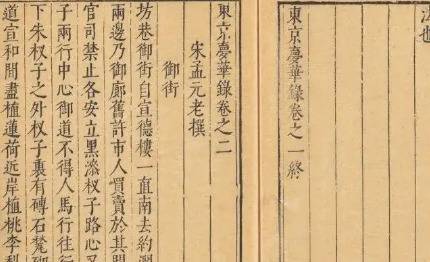 法也
東京夢華錄卷之一終
東京夢華錄卷之二
宋孟元老撰
御街
坊巷御街自宣德樓一直南去約濶
兩邊乃御廊舊許市人買賣於其間
官司禁止各安立黑漆杈子路心又
子兩行中心御道不得人馬行往行
下朱杈子之外杈子裏有磚石甃砌
道宣和間盡植蓮荷近岸植桃李梨